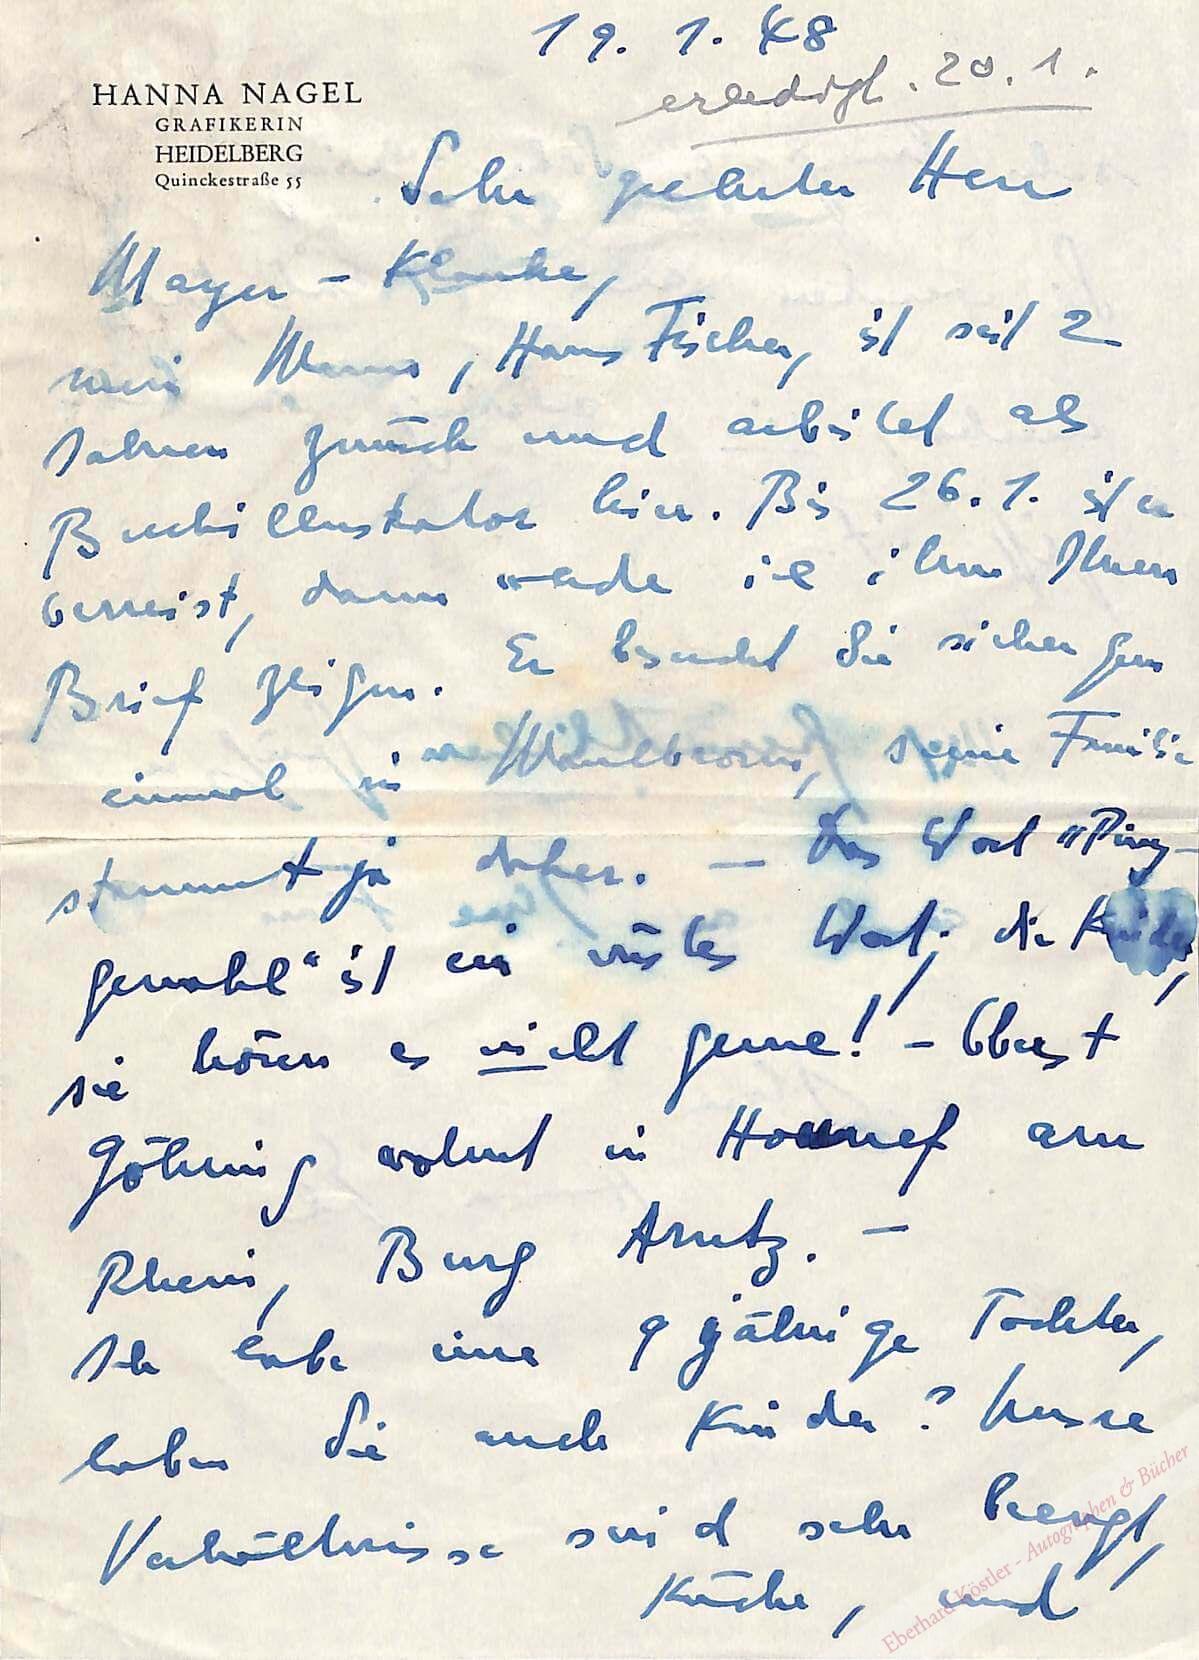 19. 1. 48
erledigt. 20. 1.
HANNA NAGEL
GRAFIKERIN
HEIDELBERG
Quinckestraße 55
Sehr geehrter Herr
Mayer - 
mein Mann, Hans Fischer, ist seit 2
Jahren zurück und arbeitet als
Buchillustrator hier. Bis 26. 1. ist er
verreist, dann werde ich ihm Ihren
Brief zeigen. Er besucht Sie sicher gern
einmal in Maulbronn, seine Familie
stammt ja daher. — Das Wort "Ping-
gemahl" ist ein wüstes Wort, die Kinder,
sie hören es nicht gerne! - Oberst
Göhring wohnt in Honnef am
Rhein, Burg Arntz. —
Ich habe eine 9 jährige Tochter,
haben Sie auch Kinder? Unsere
Verhältnisse sind sehr beengt,
Küche, und
Eberhard Köstler - Autographen & Bücher